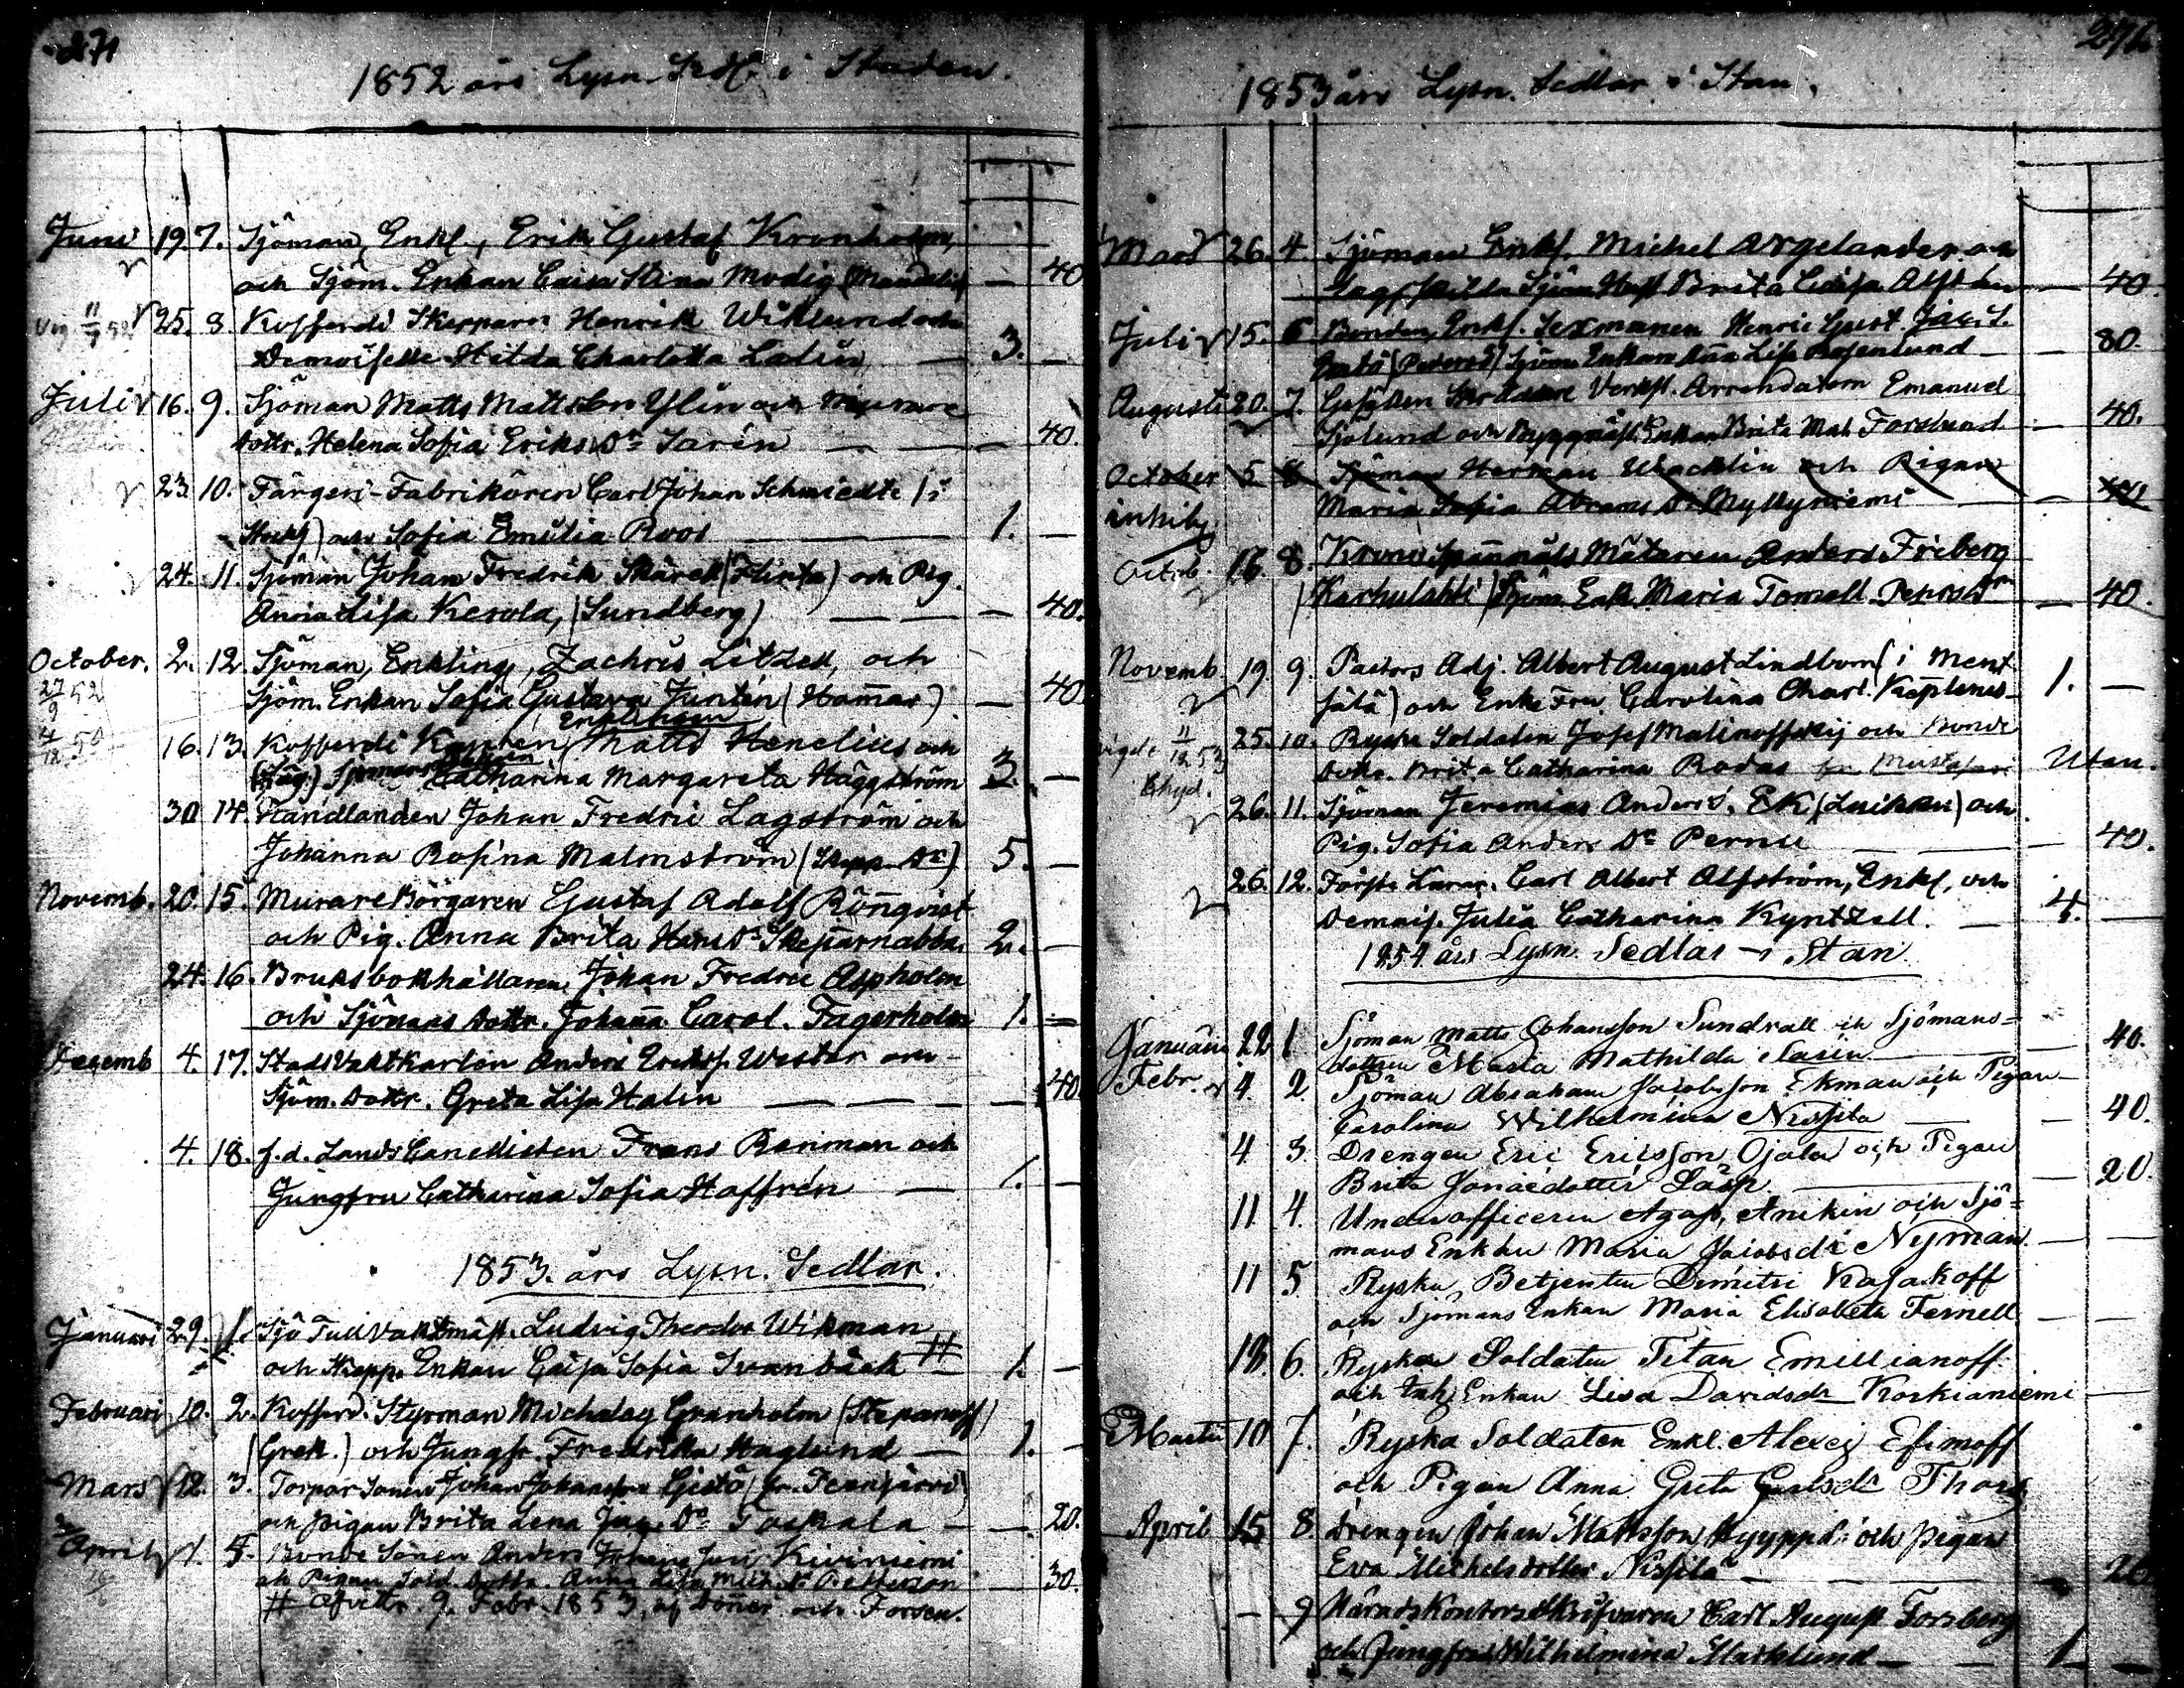 271
1852 års Lysn. Sedl. i Staden.
Juni 19. 7. Sjöman, Enkl., Erik Gustaf Kronholm,
och Sjöm. Enkan Caisa Stina Modig (Mandelin) — 40
11/7 52 25. 8 Kofferdi Skepparen Henrik Wiklund och
Demoiselle Hilda Charlotta Lalin — 3. —
Juli 16. 9. Sjöman Matts Mattsson Ylin och
Dottr. Helena Sofia Eriks Dr Sarén — — 40.
23. 10. Färgeri-Fabrikören Carl Johan Schmiedte (i
) och Sofia Emilia Roos — 1. —
24. 11. Sjöman Johan Fredrik Skärek (Flinta) och Pig.
Anna Lisa Kerola, (Sundberg) — — 40.
October. 2. 12. Sjöman, Enkling, Zachris Litzell, och
27/9 52 Sjöm. Enkan Sofia Gustava Juntén (Hamar) — 40
Enklingen
16. 13. Kofferdi Kapten, Matts Henelius och
Catharina Margareta Häggström 3. —
30 14. Handlanden Johan Fredric Lagström och
Johanna Rosina Malmström (Skepp. Dr) 5. —
Novemb. 20. 15. Murare Börgaren Gustaf Adolf Rönqvist
och Pig. Anna Brita Hans Dr Skeparnabba. 2. —
24. 16. Bruksbokhållaren Johan Fredric Aspholm
och Sjömans Dottr. Johanna Carol. Fagerholm 1. —
Decemb 4. 17. Stads Vaktkarlen Anders Erikss. Wester och
Sjöm. Dottr. Greta Lisa Halin — — — 40
4. 18. f.d. Lands Cancellisten Frans Renman och
Jungfru Catharina Sofia Hoffrén — 1. —
1853. års Lysn. Sedlar.
Januari 29. 1. Sjö Tull Vaktmäst. Ludvig Theodor Wikman
och Skepp. Enkan Caisa Sofia Svanbäck # 1. —
Februari 10. 2. Kofferd. Styrman Michelag Granholm (Stepanoff)
(Grek.) och Jungfr. Fredrika Haglund — 1. —
Mars 12. 3. Torpar Sonen Johan Johansson
och Pigan Brita Lena Jac. Dr Taskala — 20.
April 1. 4. Bonde Sonen Anders Kiviniemi
och Pigan Sold. Dottr. Anna Lisa Mich. Dr Petterson — 30.
# Afvittr. 9. Febr. 1853, af Donner och Forsen.
1853 års Lysn. Sedlar i Stan.
Mars 26. 4. Sjöman Enkl. Michel Argelander och
Brita Caisa Alfthan — 40.
Juli 15. 6 Bonden, Enkl. Sexmannen Henric Gust. Jac. S.
Sjöm. Enkan Anna Lisa Rosenlund — 80.
Augusti 20. 7. Gesällen Skräddare Verkst. Arrendatorn Emanuel
Sjölund och Byggmäst. Enkan Brita Mat. Forslund — 40.
October 5 8 Sjöman Herman Wacklin och Pigan
Maria Sofia Abrams Dr Myllyniemi — 40
Octob. 16. 8. Krono Spannmåls Mätaren Anders Friberg
(Karhulahti) Sjöm. Enk. Maria Tomell Peters Dr — 40.
Novemb. 19 9. Pastors Adj. Albert August Lindbom (i Ment
sälä) och Enke Fru Carolina Charl. 1. —
11/12 53 25. 10. Ryske Soldaten Josef Malinoffskij och Bonde
Dottr. Brita Catharina Rodas Utan.
26. 11. Sjöman Jeremias Anders. Ek (Luikku) och
Pig. Sofia Anders Dr Pernu — 40.
26. 12. Förste Carl Albert Alfström, Enkl, och
Demois. Julia Catharina Kyntzell. — 4. —
1854 års Lysn. Sedlar i Stan.
Januari 22 1 Sjöman Matts Johansson Sundvall och Sjömans=
dottren Maria Mathilda Sarin — 40.
Febr. 4. 2 Sjöman Abraham Jacobsson Ekman och Pigan
Carolina Wilhelmina Nissilä — 40.
4 3. Drengen Eric Ericsson Ojala och Pigan
Brita Jonaedotter — 20.
11 4. Underofficeren Agap. Anikin och Sjö=
mans Enkan Maria Jacobsdr Nyman. — —
11 5 Ryska Betjenten Dimitri Kasakoff
och Sjömans Enkan Maria Elisabeta Fernell —
18. 6. Ryska Soldaten Titan Emillianoff
och Enkan Lisa Davidsdr Koskianiemi —
Martii 10 7. Ryska Soldaten Enkl. Alexej Efimoff
och Pigan Anna Greta
April 15 8. Drengen Johan Mattsson och Pigan
Eva Michelsdotter Nissilä — 20
— 9 Carl August Forsberg
och Jungfru Wilhelmina Marklund — 1 —